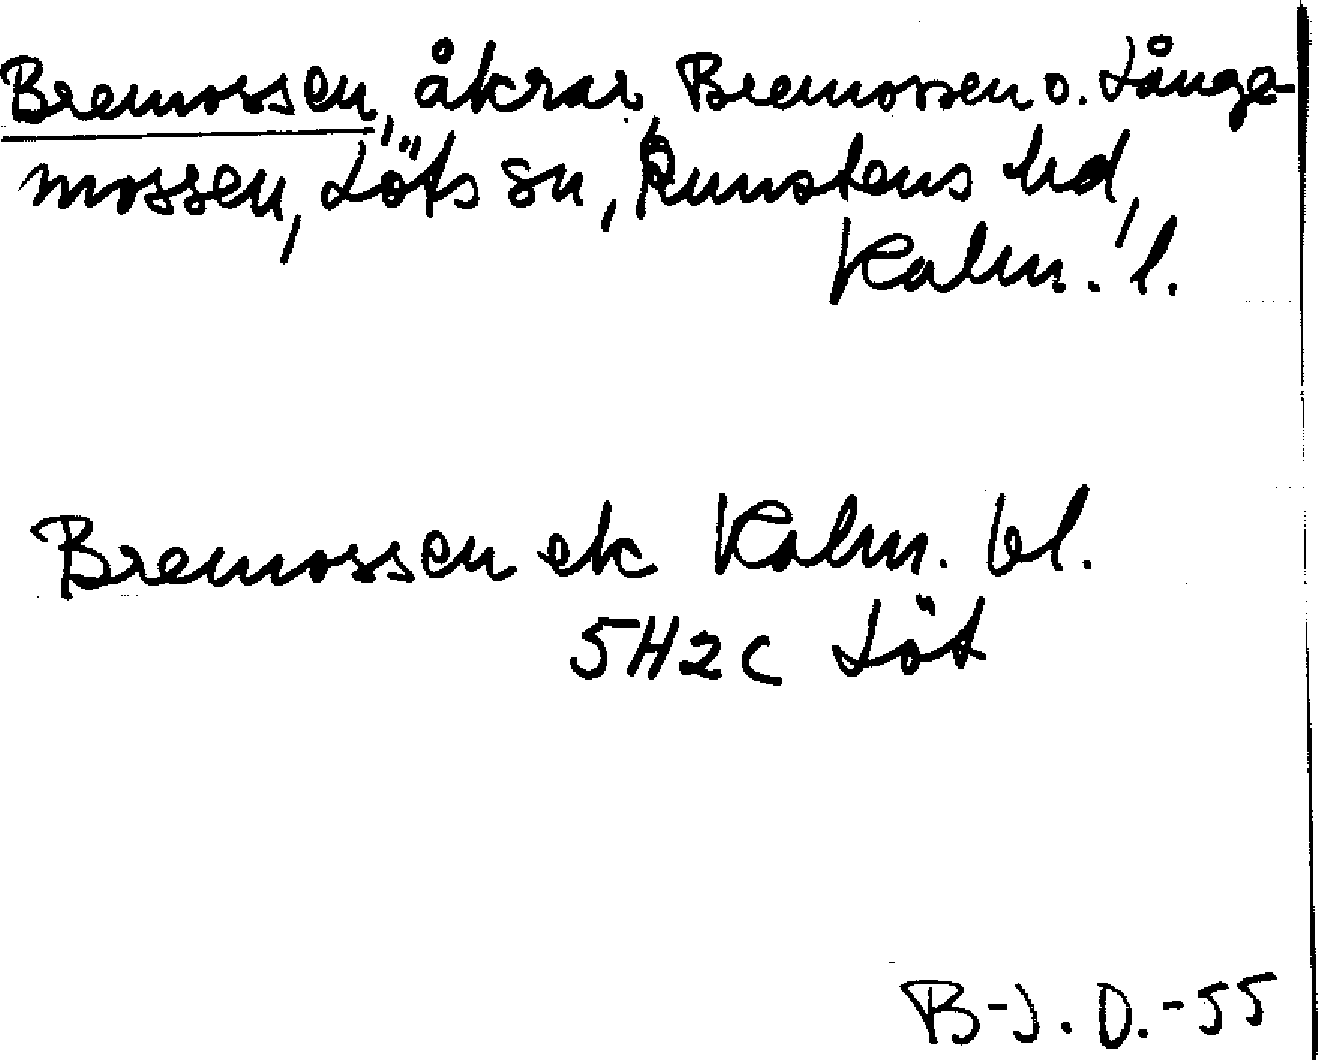 Bremossen, åkrar, Bremossen o. Långe-
mossen, Löts sn, Runstens hd,
Kalm. l.
Bremossen ek Kalm. bl.
5H2c Löt
B-J. O. -55